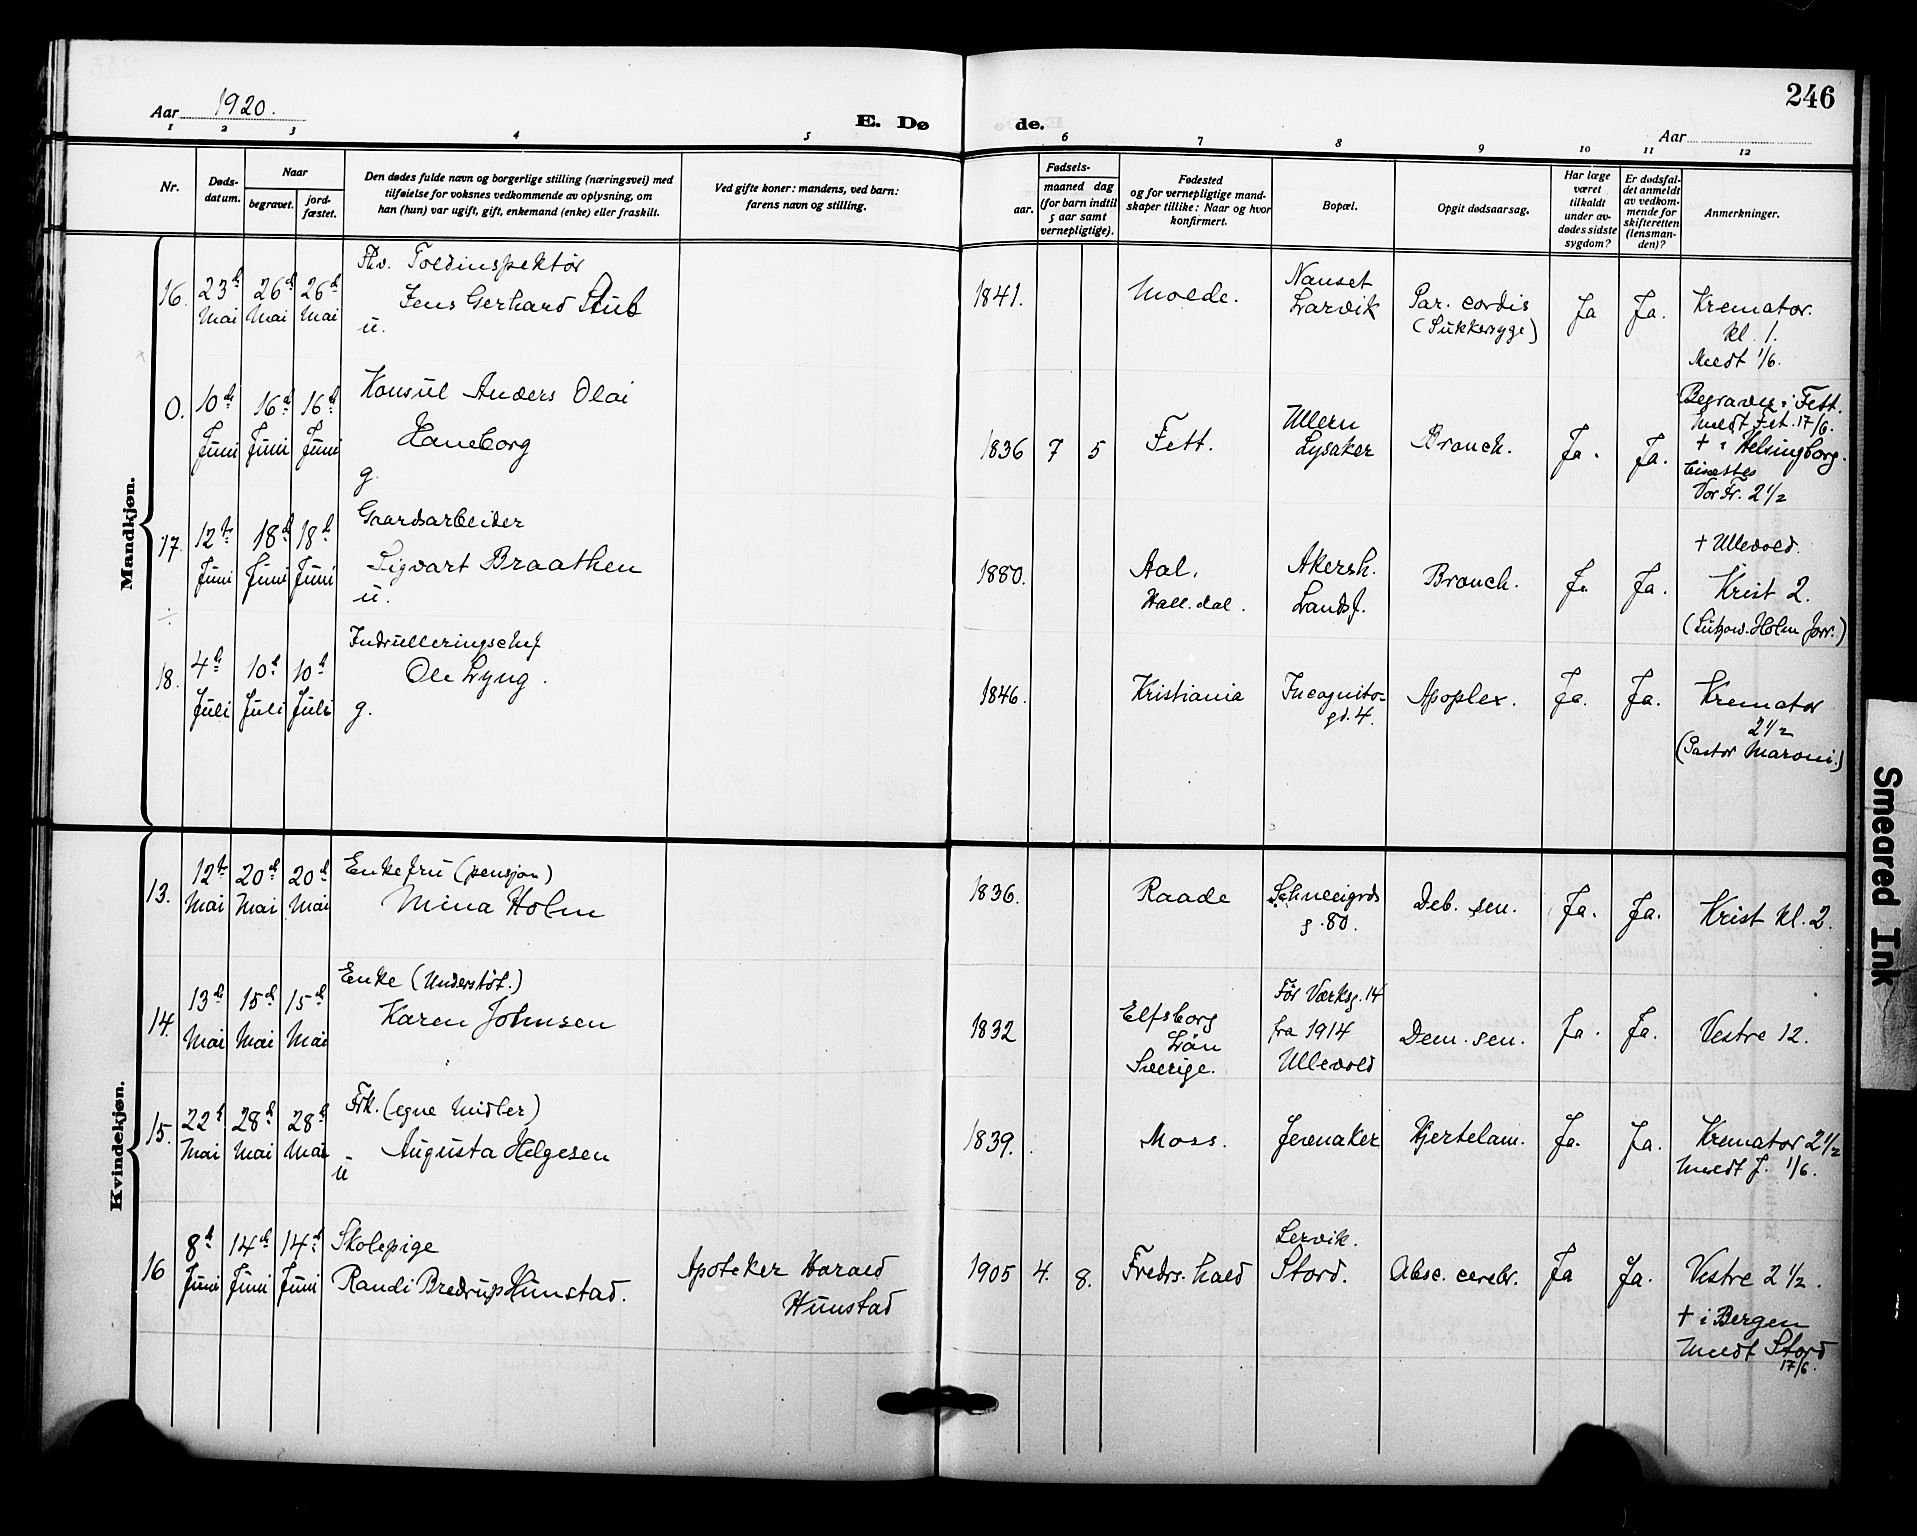 246
Aar 1920.
E. Døde.
Aar
1 2 3 4 5 6 7 8 9 10 11 12
Nr.
Døds-
datum.
Naar
begravet.
jord-
fæstet.
Den dødes fulde navn og borgerlige stilling (næringsvei) med
tilføielse for voksnes vedkommende av oplysning, om
han (hun) var ugift, gift, enkemand (enke) eller fraskilt.
Ved gifte koner: mandens, ved barn:
farens navn og stilling.
Fødsels-
aar.
maaned dag
(for barn indtil
5 aar samt
vernepligtige).
Fødested
og for vernepligtige mand-
skaper tillike: Naar og hvor
konfirmert.
Bopæl.
Opgit dødsaarsag.
Har læge
været
tilkaldt
under av-
dødes sidste
sygdom?
Er dødsfal-
det anmeldt
av vedkom-
mende for
skifteretten
(lensman-
den)?
Anmerkninger.
Mandkjøn.
16. 23d Mai 26d Mai 26d Mai
Fhv. Toldinspektør
Jens Gerhard Stub
u.
1841. Molde.
Nanset
Larvik
Par. cordis
(Sukkersyge)
Ja Ja.
Kremator.
kl. 1.
Meldt 1/6.
0. 10de Juni 16d Juni 16d Juni
Konsul Anders Olai
Haneborg
g.
1836 7 5 Fett.
Ullern
Lysaker
Bronch.
Ja. Ja.
Begraves i Fett.
meldt Fet. 17/6.
+ i Helsingborg.
Bisættes
Vor Fr. 2 1/2
17. 12te Juni 18d Juni 18d Juni
Gaardsarbeider
Sigvart Braathen
u.
1880.
Aal.
Hall. dal.
Akersh.
Landsf.
Bronch.
Ja Ja.
+ Ullevold.
Krist 2.
(Lützow-Holm forr.)
18. 4de Juli 10d Juli 10d Juli
Indrulleringschef
Ole Lyng.
g.
1846. Kristiania
Incognito-
gd. 4.
Apoplex.
Ja. Ja.
Kremator
2 1/2
(Pastor Maroni.)
Kvindekjøn.
13. 12te Mai 20d Mai 20d Mai
Enkefru (pensjon)
Mina Holm
1836. Raade
Schweigrds
g. 80.
Deb. sen.
Ja. Ja.
Krist kl. 2.
14. 13de Mai 15de Mai 15de Mai
Enke (Understøt.)
Karen Johnsen
1832
Elfsborg
Län
Sverige.
Før Værksg. 14
fra 1914
Ullevold
Dem. sen.
Ja. Ja.
Vestre 12.
15. 22d Mai 28d Mai 28d Mai
Frk. (egne midler)
Augusta Helgesen
u
1839. Moss. Jernaker Hjertelam.
Ja. Ja.
Kremator 2 1/2
Meldt J. 1/6.
16 8d Juni 14de Juni 14d Juni
Skolepige
Randi Bredrup Hunstad.
Apoteker Harald
Hunstad
1905 4. 8. Fredrs. hald
Lervik.
Stord.
Absc. cerebr.
Ja Ja.
Vestre 2 1/2.
+ i Bergen
Meldt Stord
17/6.
Smeared Ink